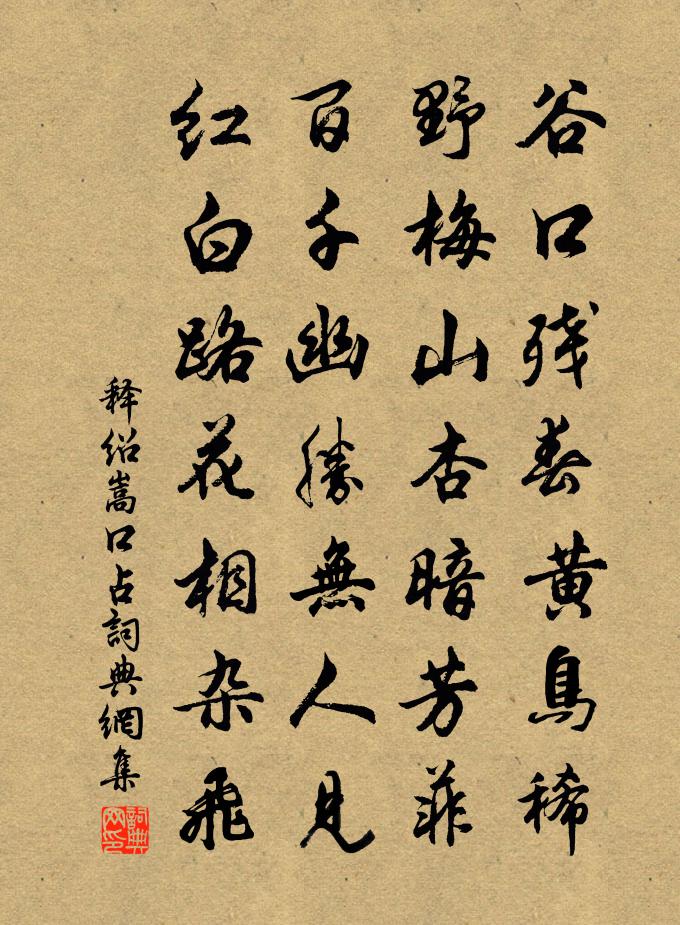 谷口残春黄鳥稀
野梅山杏暗芳菲
百千幽勝無人見
红白路花相杂飛
释绍嵩口占詞典網集
詞典网印